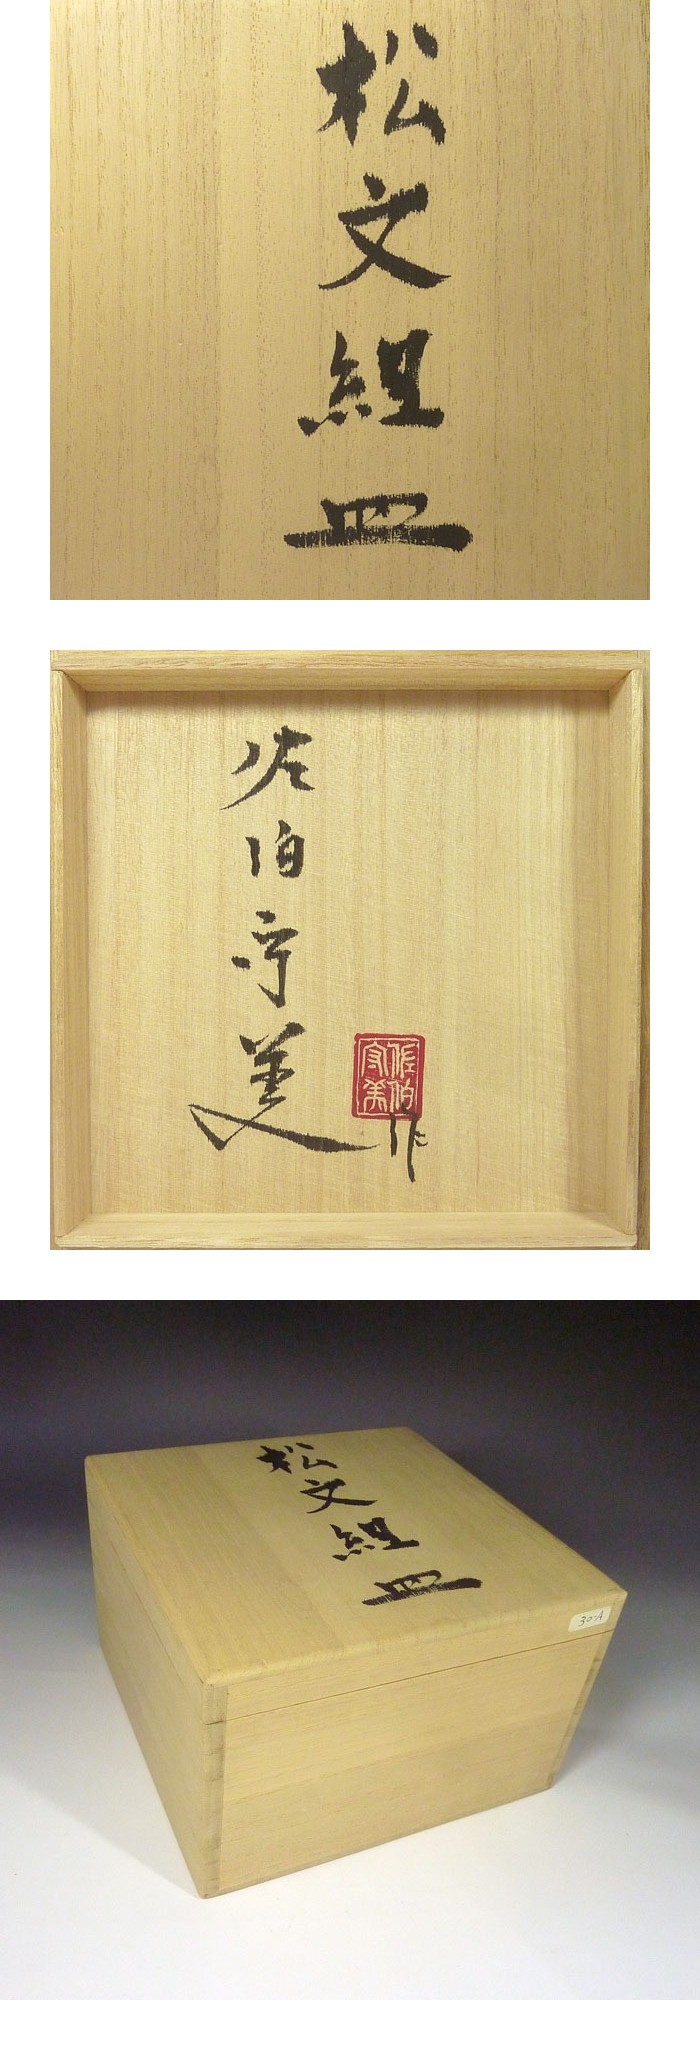 松文組皿
佐伯守美
作
佐伯
守美
松文組皿
30-A